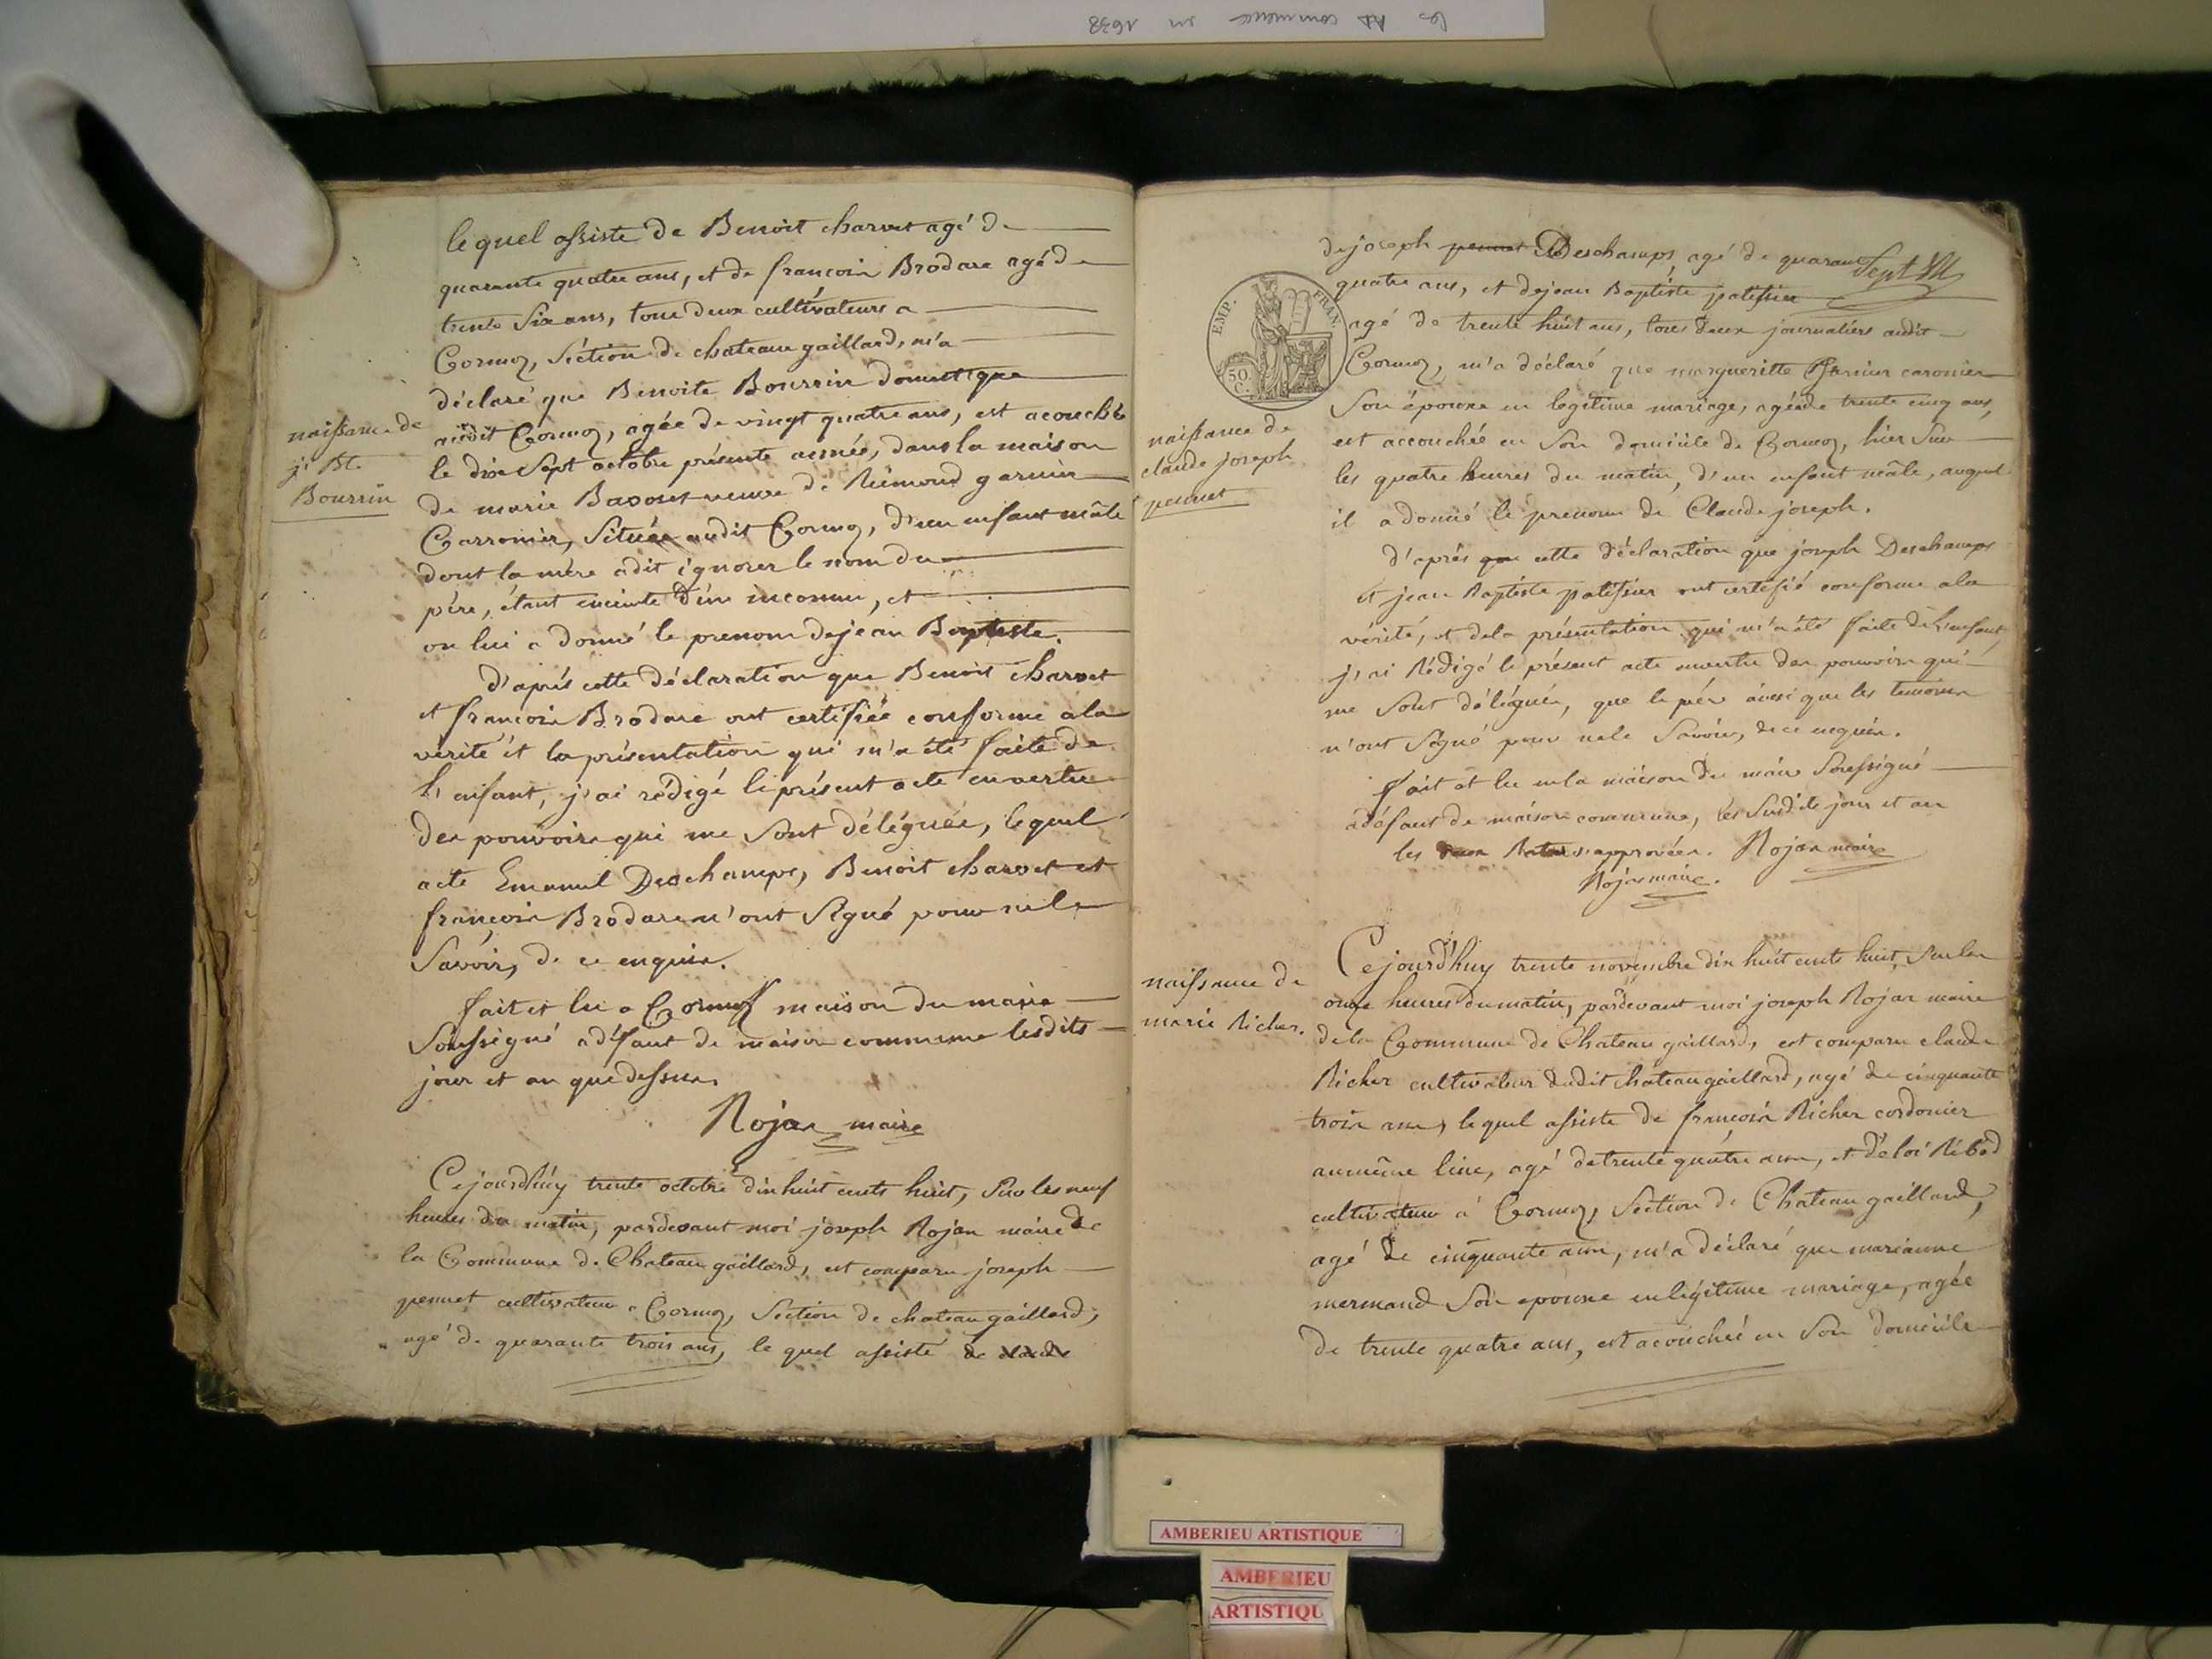 les commence en 1638
lequel assiste de Benoit charvet agé de
quarante quatre ans, et de francois Brodare agé de
trente Six ans, tous deux cultivateurs a
Cormoz, Séction de chateau gaillard, m'a
déclaré que Benoite Bourrin domestique
audit Cormoz, agée de vingt quatre ans, est acouchée
le dix Sept octobre présente année, dans la maison
de marie veuve de Rémond garnier
Carronier, Située audit Cormoz, d'un enfant mâle
dont la mére a dit ignorer le nom du
pére, étant enceinte d'un inconnu, et
on lui a donné le prenom de jean Baptiste.
naissance de
jn Bte
Bourrin
d'aprés cette déclaration que Benoit charvet
et francois Brodare ont certifiée conforme a la
vérité et la présentation qui m'a été faite de
l'enfant, j'ai rédigé le présent acte en vertu
des pouvoirs qui me Sont délégués, lequel
acte Emanuel Deschamps, Benoit charvet et
françois Brodare n'ont Signé pour ne le
Savoir, de ce enquis.
fait et lu a Cormoz maison du maire
Soussigné a défaut de maison commune lesdits
jour et an que dessus.
Rojas maire
Cejourd'huy trente octobre dix huit cents huit, Sur les neuf
heures du matin, pardevant moi joseph Rojas maire de
la Commune de Chateau gaillard, est comparu joseph
pennet cultivateur a Cormoz, Section de chateau gaillard,
agé de quarante trois ans, le quel assisté de claude
de joseph pennet Deschamps, agé de quarante Sept
quatre ans, et de jean Baptiste patissier
agé de trente huit ans, tous deux journaliers audit
Cormoz, m'a déclaré que margueritte caronier
Son épouse en legitime mariage, agée de trente cinq ans,
est accouchée en Son domicile de Cormoz, hier Sur
les quatre heures du matin, d'un enfant mâle, auquel
il a donné le prenom de Claude joseph.
EMP. FRAN.
50 C.
naissance de
claude joseph
pennet
d'aprés que cette déclaration que joseph Deschamps
et jean Baptiste patissier ont certifié conforme a la
vérité, et de la présentation qui m'a été faite de l'enfant,
j'ai Rédigé le présent acte en vertu des pouvoirs qui
me Sont délégués, que le pére ainsi que les temoins
n'ont Signé pour ne le Savoir, de ce enquis.
fait et lu en la maison du maire Soussigné
a défaut de maison commune, les Susdits jour et an
les approuvées. Rojas maire
Rojas maire.
naissance de
marie Richer.
Cejourd'huy trente novembre dix huit cents huit, Sur les
onze heures du matin, pardevant moi joseph Rojas maire
de la Commune de Chateau gaillard, est comparu claude
Richer cultivateur dudit chateau gaillard, agé de cinquante
trois ans, le quel assisté de francois Richer cordonier
au même lieu, agé de trente quatre ans, et d'éloi
cultivateur à Cormoz, Section de Chateau gaillard,
agé de cinquante ans, m'a déclaré que marianne
mermand Son epouse en légitime mariage, agée
de trente quatre ans, est acouchée en Son domicile
AMBERIEU ARTISTIQUE
AMBERIEU
ARTISTIQU